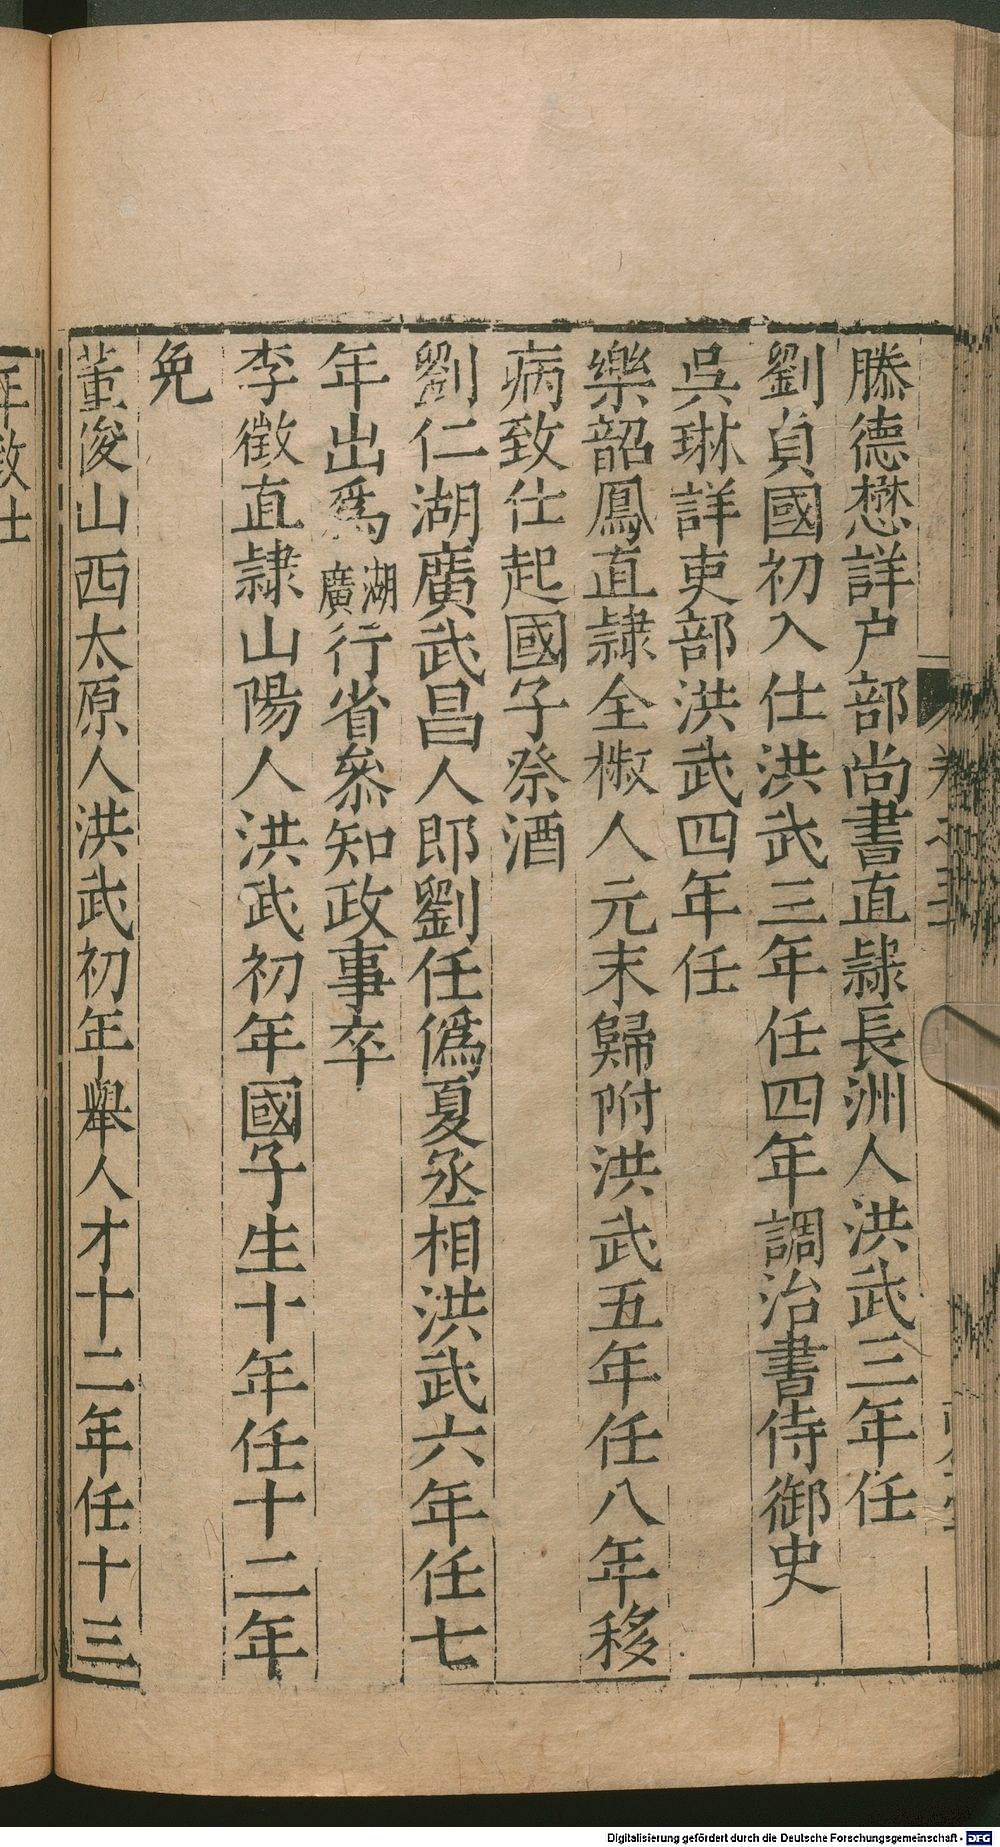 滕德懋詳户部尚書直隷長洲人洪武三年任
劉貞國初入仕洪武三年任四年調治書侍御史
吳琳詳吏部洪武四年任
樂韶鳳直隷全椒人元末歸附洪武五年任八年移
病致仕起國子祭酒
劉仁湖廣武昌人即劉任僞夏丞相洪武六年任七
年出爲湖廣行省叅知政事卒
李徵直隷山陽人洪武初年國子生十年任十二年
免
董俊山西太原人洪武初年舉人才十二年任十三
年致仕
Digitalisierung gefördert durch die Deutsche Forschungsgemeinschaft - DFG